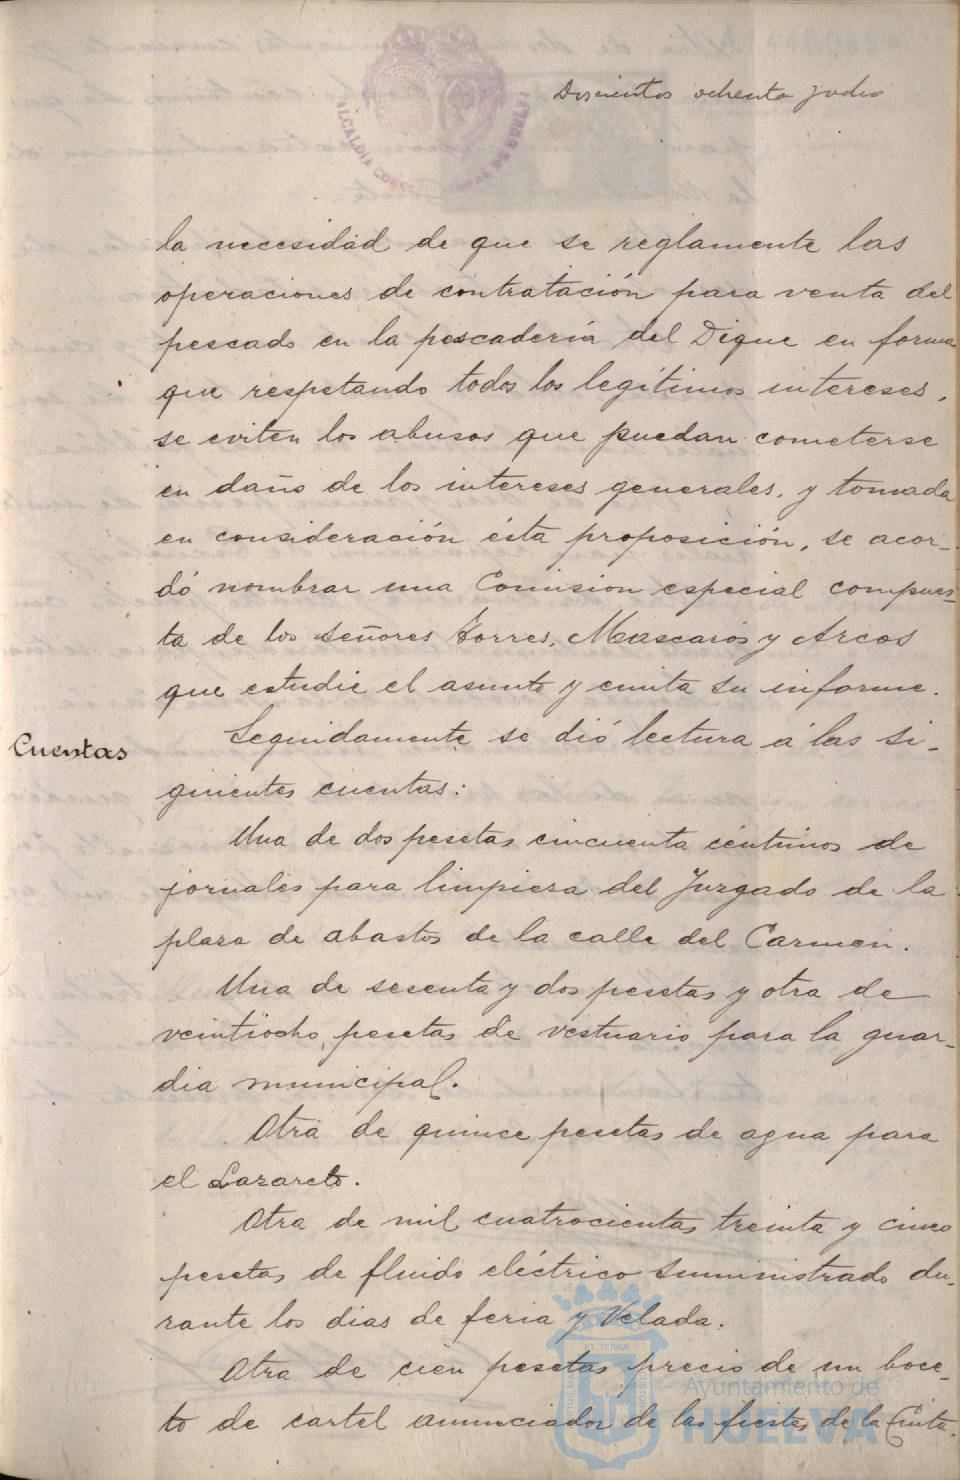 Doscientos ochenta y ocho
ALCALDIA CONSTITUCIONAL DE HUELVA
la necesidad de que se reglamente las
operaciones de contratación para venta del
pescado en la pescadería del Dique en forma
que respetando todos los legítimos intereses,
se eviten los abusos que puedan cometerse
en daño de los intereses generales, y tomada
en consideración ésta proposición, se acor-
dó nombrar una Comision especial compues-
ta de los señores Torres, Mascarós y Arcos
que estudie el asunto y emita su informe.
Cuentas
Seguidamente se dió lectura á las si-
guientes cuentas:
Una de dos pesetas cincuenta céntimos de
jornales para limpieza del Juzgado de la
plaza de abastos de la calle del Carmen.
Una de sesenta y dos pesetas y otra de
veintiocho pesetas de vestuario para la guar-
dia municipal.
Otra de quince pesetas de agua para
el Lazareto.
Otra de mil cuatrocientas treinta y cinco
pesetas de fluido eléctrico suministrado du-
rante los dias de feria y Velada.
Otra de cien pesetas precio de un boce-
to de cartel anunciador de las fiestas de la Cinta.
Ayuntamiento de
HUELVA